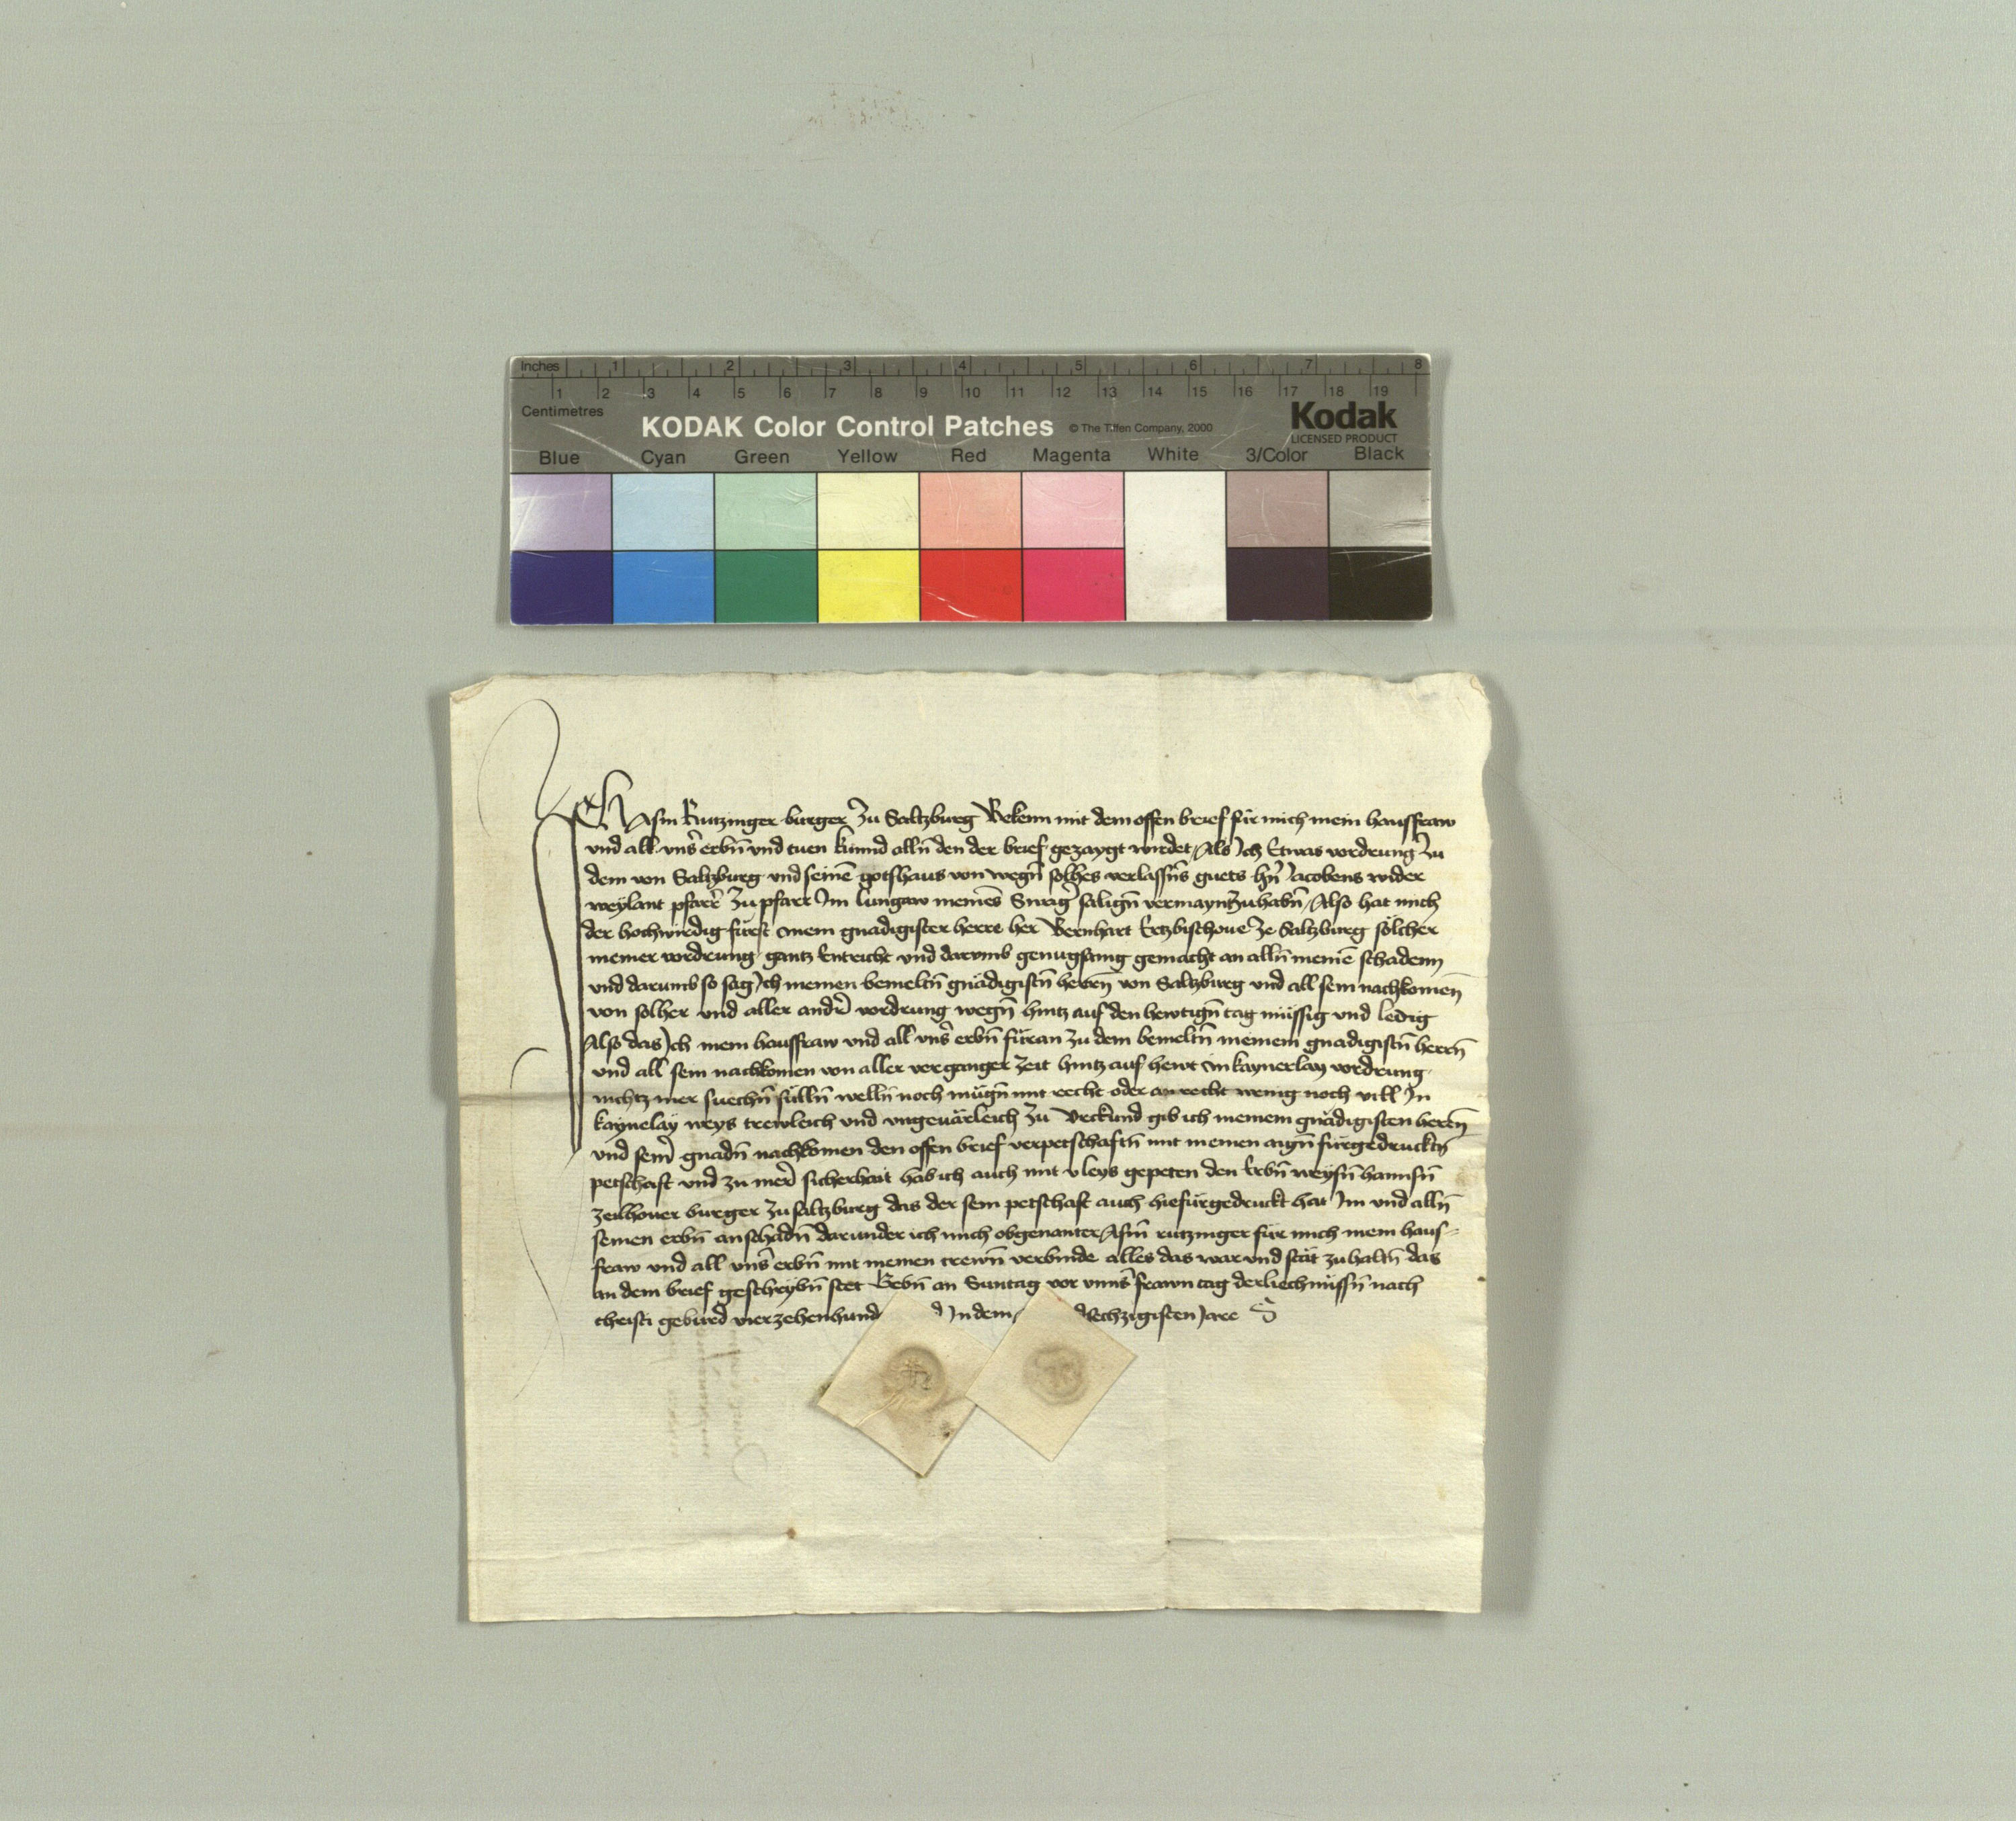 Inches 1 2 3 4 5 6 7 8
1 2 3 4 5 6 7 8 9 10 11 12 13 14 15 16 17 18 19
Centimetres
KODAK Color Control Patches © The Tiffen Company, 2000
Kodak
LICENSED PRODUCT
Blue Cyan Green Yellow Red Magenta White 3/Color Black
Ich Asm Rutzinger burger Zu Saltzburg Bekenn mit dem offen brief für mich mein hausfraw
vnd all vns̄ erbn̄ vnd tuen kunnd alln̄ den der brief gezaygt wirdet / Als Ich Etwas vordrung Zu
dem von Saltzburg vnd seinē gotshaus von wegn̄ solhes verlassn̄s guets hn̄ Jacobens wider
weylant pfarr̄ Zu pfarr Im lungaw meines Swaḡ salign̄ vermaynt Zuhabn̄ / Also hat mich
der hochwirdig fürst mein gnadigister herre her Bernhart Ertzbischoue Ze Saltzburg sölcher
meiner vordrung gantz Entricht vnd darvmb genugsamg gemacht an alln̄ meinē schadenn
vnd darumb so sag Ich meinen bemeltn̄ gnädigistn̄ herrn̄ von Saltzburg vnd all sein nachkomen̄
von solher vnd aller andr̄ vordrung wegn̄ hintz auf den hewtign̄ tag müssig vnd ledig
Also das Ich mein hausfraw vnd all vns̄ erbn̄ füran Zu dem bemeltn̄ meinem gnadigistn̄ herrn̄
vnd all sein nachkomen von aller verganger Zeit hintz auf hewt in kaynerlay vordrung
nichtz mer suechn̄ sülln̄ welln̄ noch mügn̄ mit recht oder an recht wenig noch vill In
kaynelay weys trewleich vnd vngeuärleich Zu Vrckund gib ich meinem gnädigisten herrn̄
vnd sein̄ gnadn̄ nachkomen den offen brief verpetschaftn̄ mit meinen aign̄ fürgedrucktn̄
petschaft vnd zu mer̄ sicherhait hab ich auch mit vleys gepeten den Erbn̄ weysn̄ hannsn̄
Zeilhouer burger Zu saltzburg das der sein petschaft auch hiefürgedruckt hat Im vnd alln̄
seinen erbn̄ an schadn̄ darunder ich mich obgenanter Asm̄ rutzinger für mich mein haus-
fraw vnd all vns̄ erbn̄ mit meinen trewn̄ verbinde alles das war vnd stät zu haltn̄ das
an dem brief geschrybn̄ stet Gebn̄ an Suntag vor vnns̄ frawn tag der liechmüssn̄ nach
christi geburd vierzehenhund d In dem sechzigisten Jare